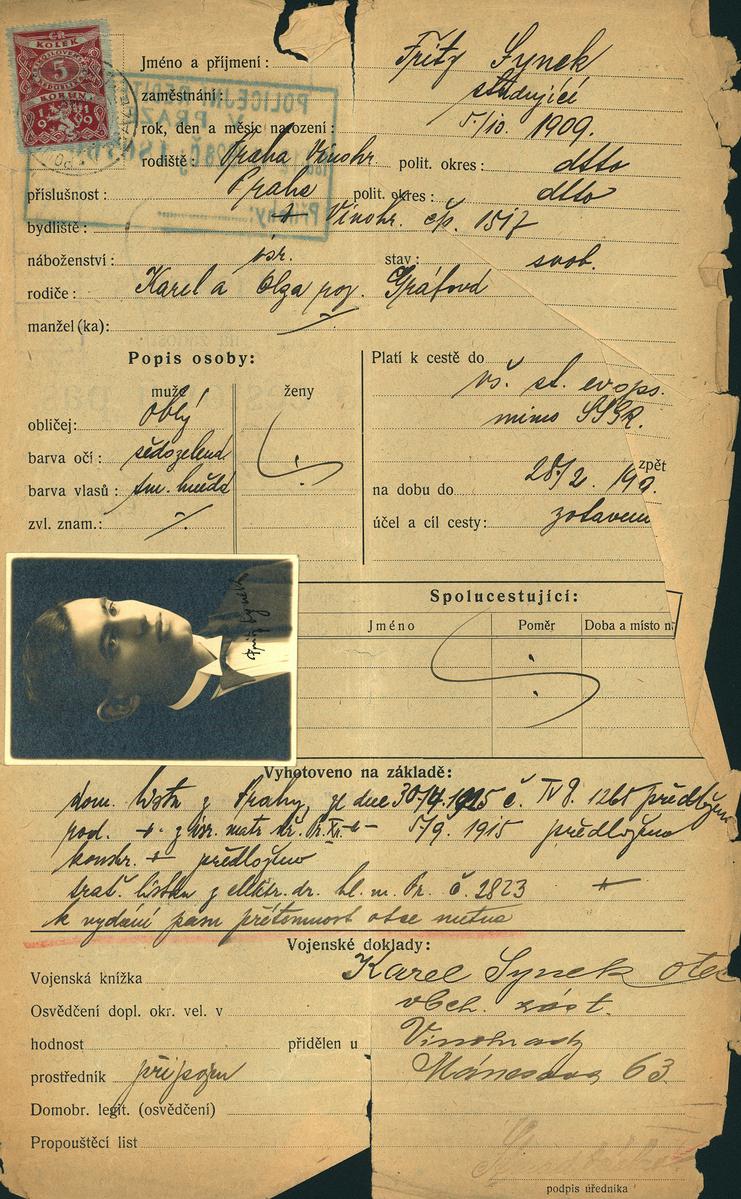 KOLEK
5
KORUN
1919
Jméno a příjmení: Fritz Synek
zaměstnání: studující
rok, den a měsíc narození: 5/10. 1909.
rodiště: Praha Vinohr. polit. okres: dtto
příslušnost: Praha polit. okres: dtto
bydliště: Vinohr. čp. 1517
náboženství: isr. stav: svob.
rodiče: Karel a Olga roz. Gráfová
manžel (ka): ·/.
Popis osoby:
muže ženy
obličej: oblý
barva očí: šedozelená
barva vlasů: tm. hnědá
zvl. znam.: ·/.
Platí k cestě do vš. st. evrops.
mimo SSSR.
zpět
na dobu do 28/2.
účel a cíl cesty: zotavení
Spolucestující:
Jméno Poměr Doba a místo n
Fritz Synek
Vyhotoveno na základě:
dom. listu z Prahy, ze dne 30/4. 1925 č. 1265 předložen
5/9. 1915 předloženo
předloženo
č. 2823
k vydání pasu přítomnost otce nutna
Vojenské doklady:
Karel Synek otec
Vojenská knížka
obch. zást.
Osvědčení dopl. okr. vel. v
Vinohrady
hodnost přidělen u
Mánesova 63
prostředník připojen
Domobr. legit. (osvědčení)
Propouštěcí list
podpis úředníka